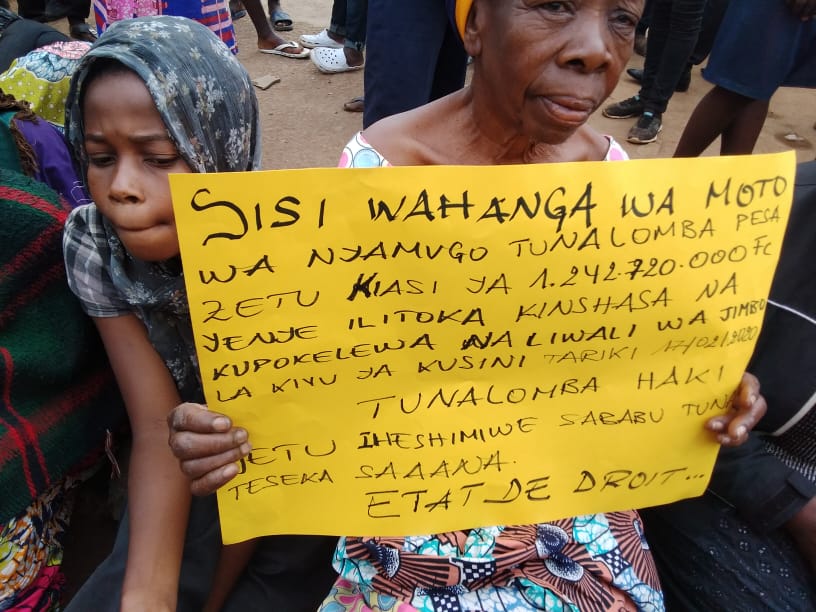 SISI WAHANGA WA MOTO
WA NYAMUGO TUNALOMBA PESA
ZETU KIASI YA 1.242.720.000 FC
YENYE ILITOKA KINSHASA NA
KUPOKELEWA NA LIWALI WA JIMBO
LA KIVU YA KUSINI TARIKI 17/02/2020
TUNALOMBA HAKI
YETU IHESHIMIWE SABABU TUNA
TESEKA SAAANA.
ETAT DE DROIT...